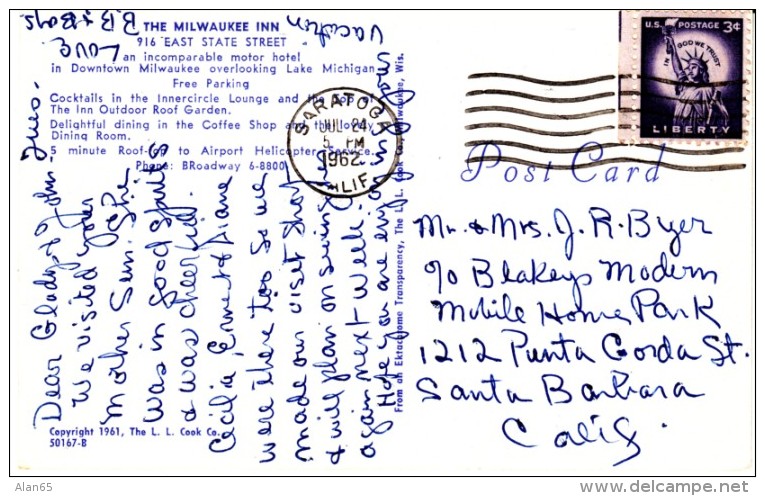 THE MILWAUKEE INN
916 EAST STATE STREET
an incomparable motor hotel
in Downtown Milwaukee overlooking Lake Michigan
Free Parking
Cocktails in the Innercircle Lounge and the Top of
The Inn Outdoor Roof Garden.
Delightful dining in the Coffee Shop and the lovely
Dining Room.
5 minute Roof-top to Airport Helicopter Service.
Phone: BRoadway 6-8800
Tues.
Dear Gladys & John -
We visited your
Mother Sun. She
was in good spirits
& was cheerful.
Cecilia, Ernest & Diane
were there too so we
made our visit short
& will plan on seeing her
again next week.
Hope you are enjoying your
vacation
Love
B.B. & Boys
Copyright 1961, The L. L. Cook Co.
50167-B
From an Ektachrome Transparency, The L. L. Cook Co., Milwaukee, Wis.
SARATOGA
JUL 24
5 PM
1962
CALIF.
U.S. POSTAGE 3¢
IN GOD WE TRUST
LIBERTY
Post Card
Mr. & Mrs. J. R. Byer
c/o Blakeys Modern
Mobile Home Park
1212 Punta Gorda St.
Santa Barbara
Calif.
Alan65
© delcampe.net